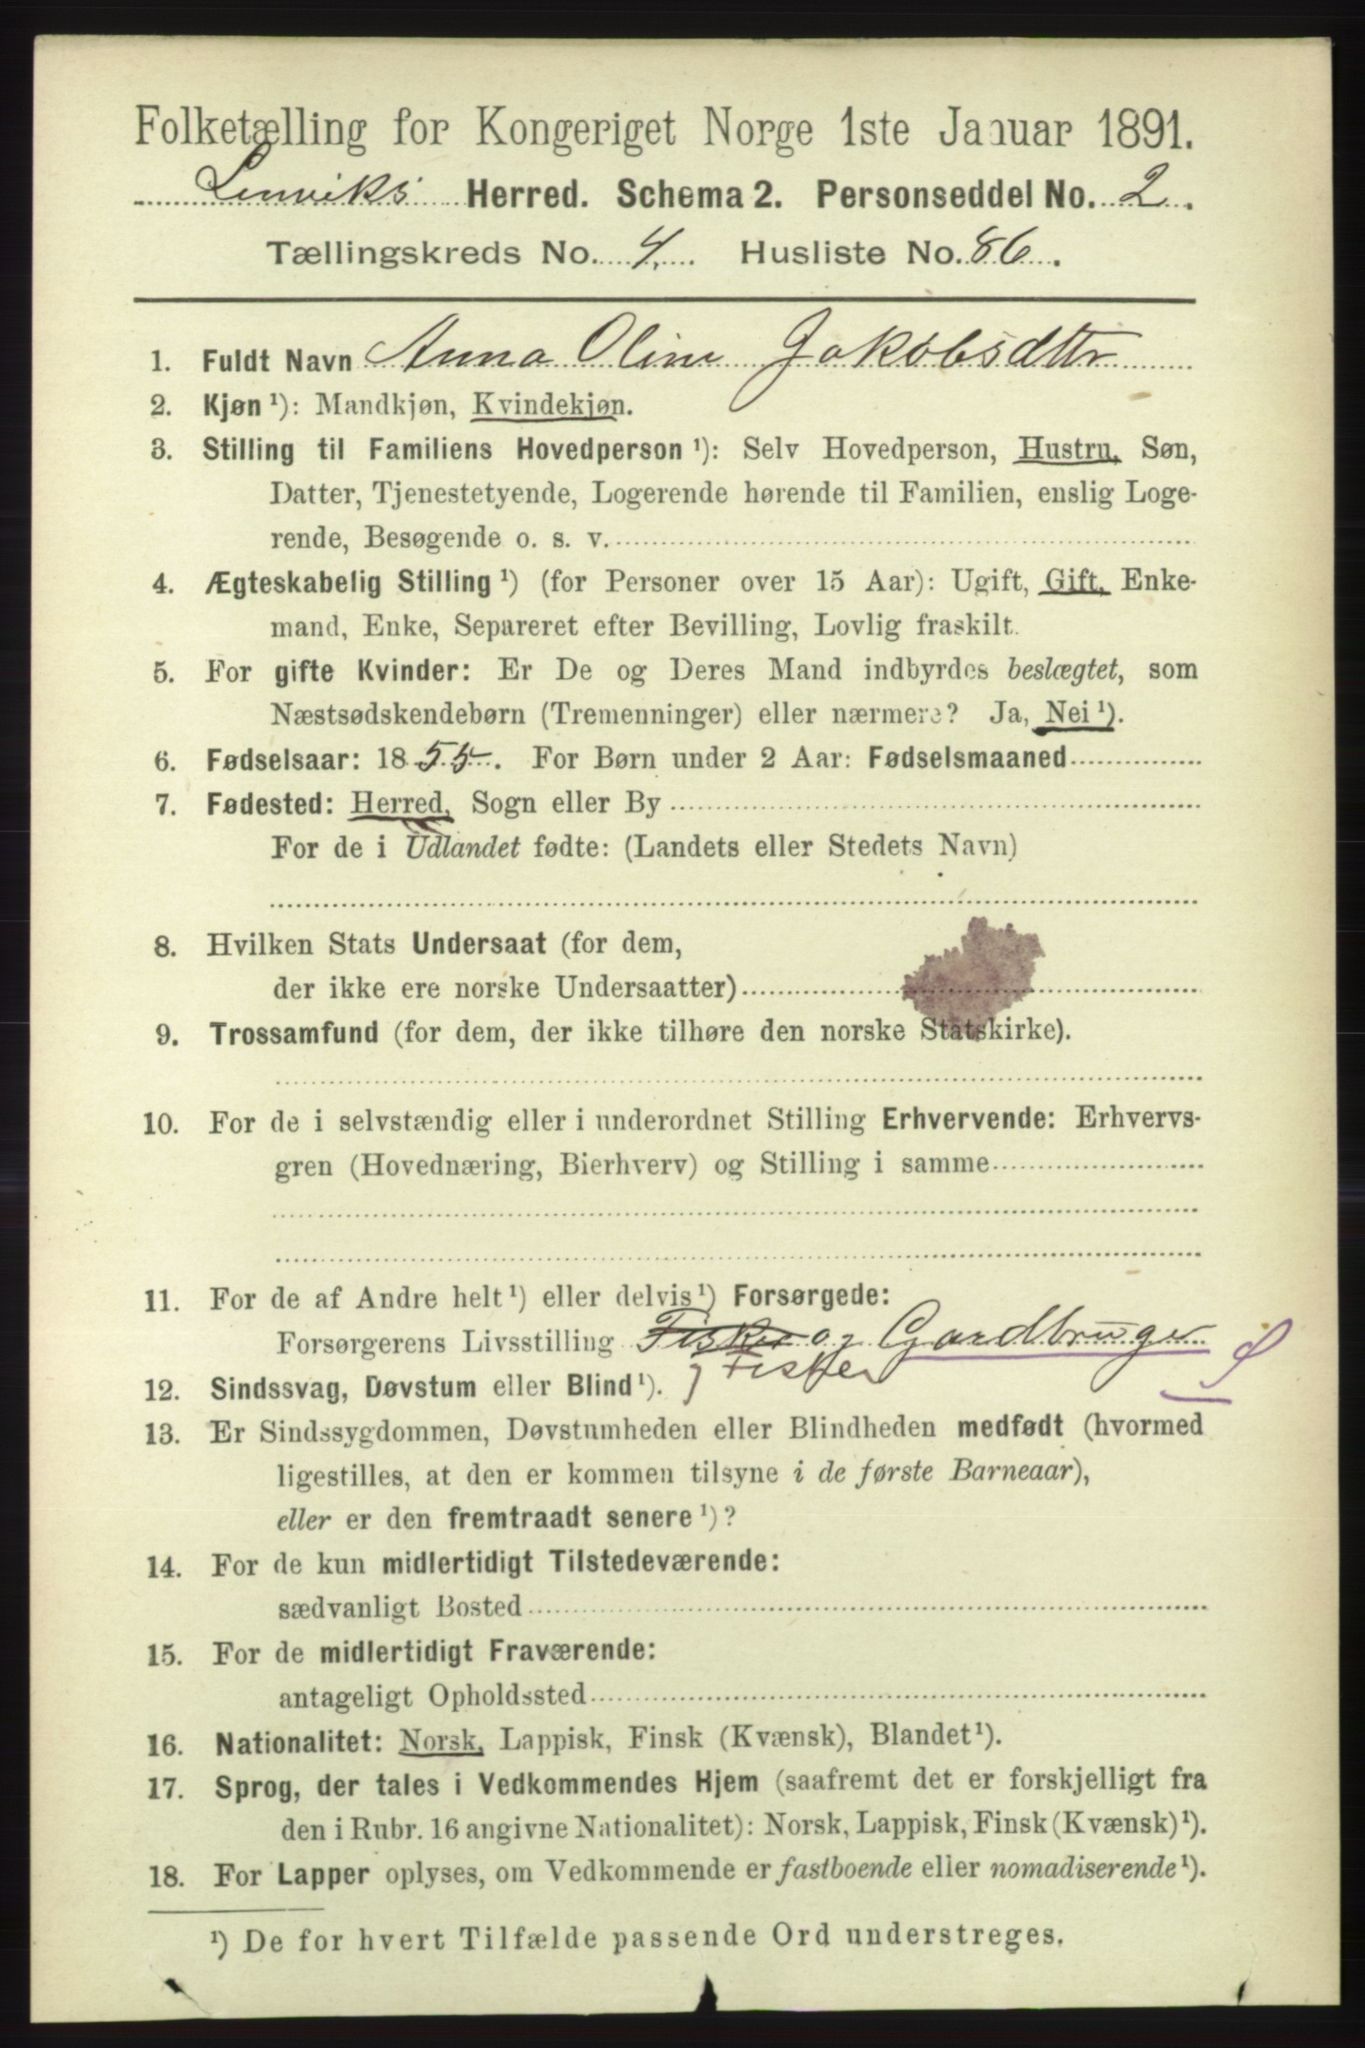 Folketælling for Kongeriget Norge 1ste Januar 1891.
Lenviks Herred. Schema 2. Personseddel No. 2.
Tællingskreds No. 4. Husliste No. 86.
1. Fuldt Navn Anna Oline Jakobsdttr
2. Kjøn ¹): Mandkjøn, Kvindekjøn.
3. Stilling til Familiens Hovedperson ¹): Selv Hovedperson, Hustru, Søn,
Datter, Tjenestetyende, Logerende hørende til Familien, enslig Loge-
rende, Besøgende o. s. v.
4. Ægteskabelig Stilling ¹) (for Personer over 15 Aar): Ugift, Gift, Enke-
mand, Enke, Separeret efter Bevilling, Lovlig fraskilt.
5. For gifte Kvinder: Er De og Deres Mand indbyrdes beslægtet, som
Næstsødskendebørn (Tremenninger) eller nærmere? Ja, Nei ¹).
6. Fødselsaar: 1855. For Børn under 2 Aar: Fødselsmaaned
7. Fødested: Herred, Sogn eller By
For de i Udlandet fødte: (Landets eller Stedets Navn)
8. Hvilken Stats Undersaat (for dem,
der ikke ere norske Undersaatter)
9. Trossamfund (for dem, der ikke tilhøre den norske Statskirke).
10. For de i selvstændig eller i underordnet Stilling Erhvervende: Erhvervs-
gren (Hovednæring, Bierhverv) og Stilling i samme
11. For de af Andre helt ¹) eller delvis ¹) Forsørgede:
Forsørgerens Livsstilling Fisker og Gardbruger
12. Sindssvag, Døvstum eller Blind ¹). Fisker
13. Er Sindssygdommen, Døvstumheden eller Blindheden medfødt (hvormed
ligestilles, at den er kommen tilsyne i de første Barneaar),
eller er den fremtraadt senere ¹)?
14. For de kun midlertidigt Tilstedeværende:
sædvanligt Bosted
15. For de midlertidigt Fraværende:
antageligt Opholdssted
16. Nationalitet: Norsk, Lappisk, Finsk (Kvænsk), Blandet ¹).
17. Sprog, der tales i Vedkommendes Hjem (saafremt det er forskjelligt fra
den i Rubr. 16 angivne Nationalitet): Norsk, Lappisk, Finsk (Kvænsk) ¹).
18. For Lapper oplyses, om Vedkommende er fastboende eller nomadiserende ¹).
¹) De for hvert Tilfælde passende Ord understreges.